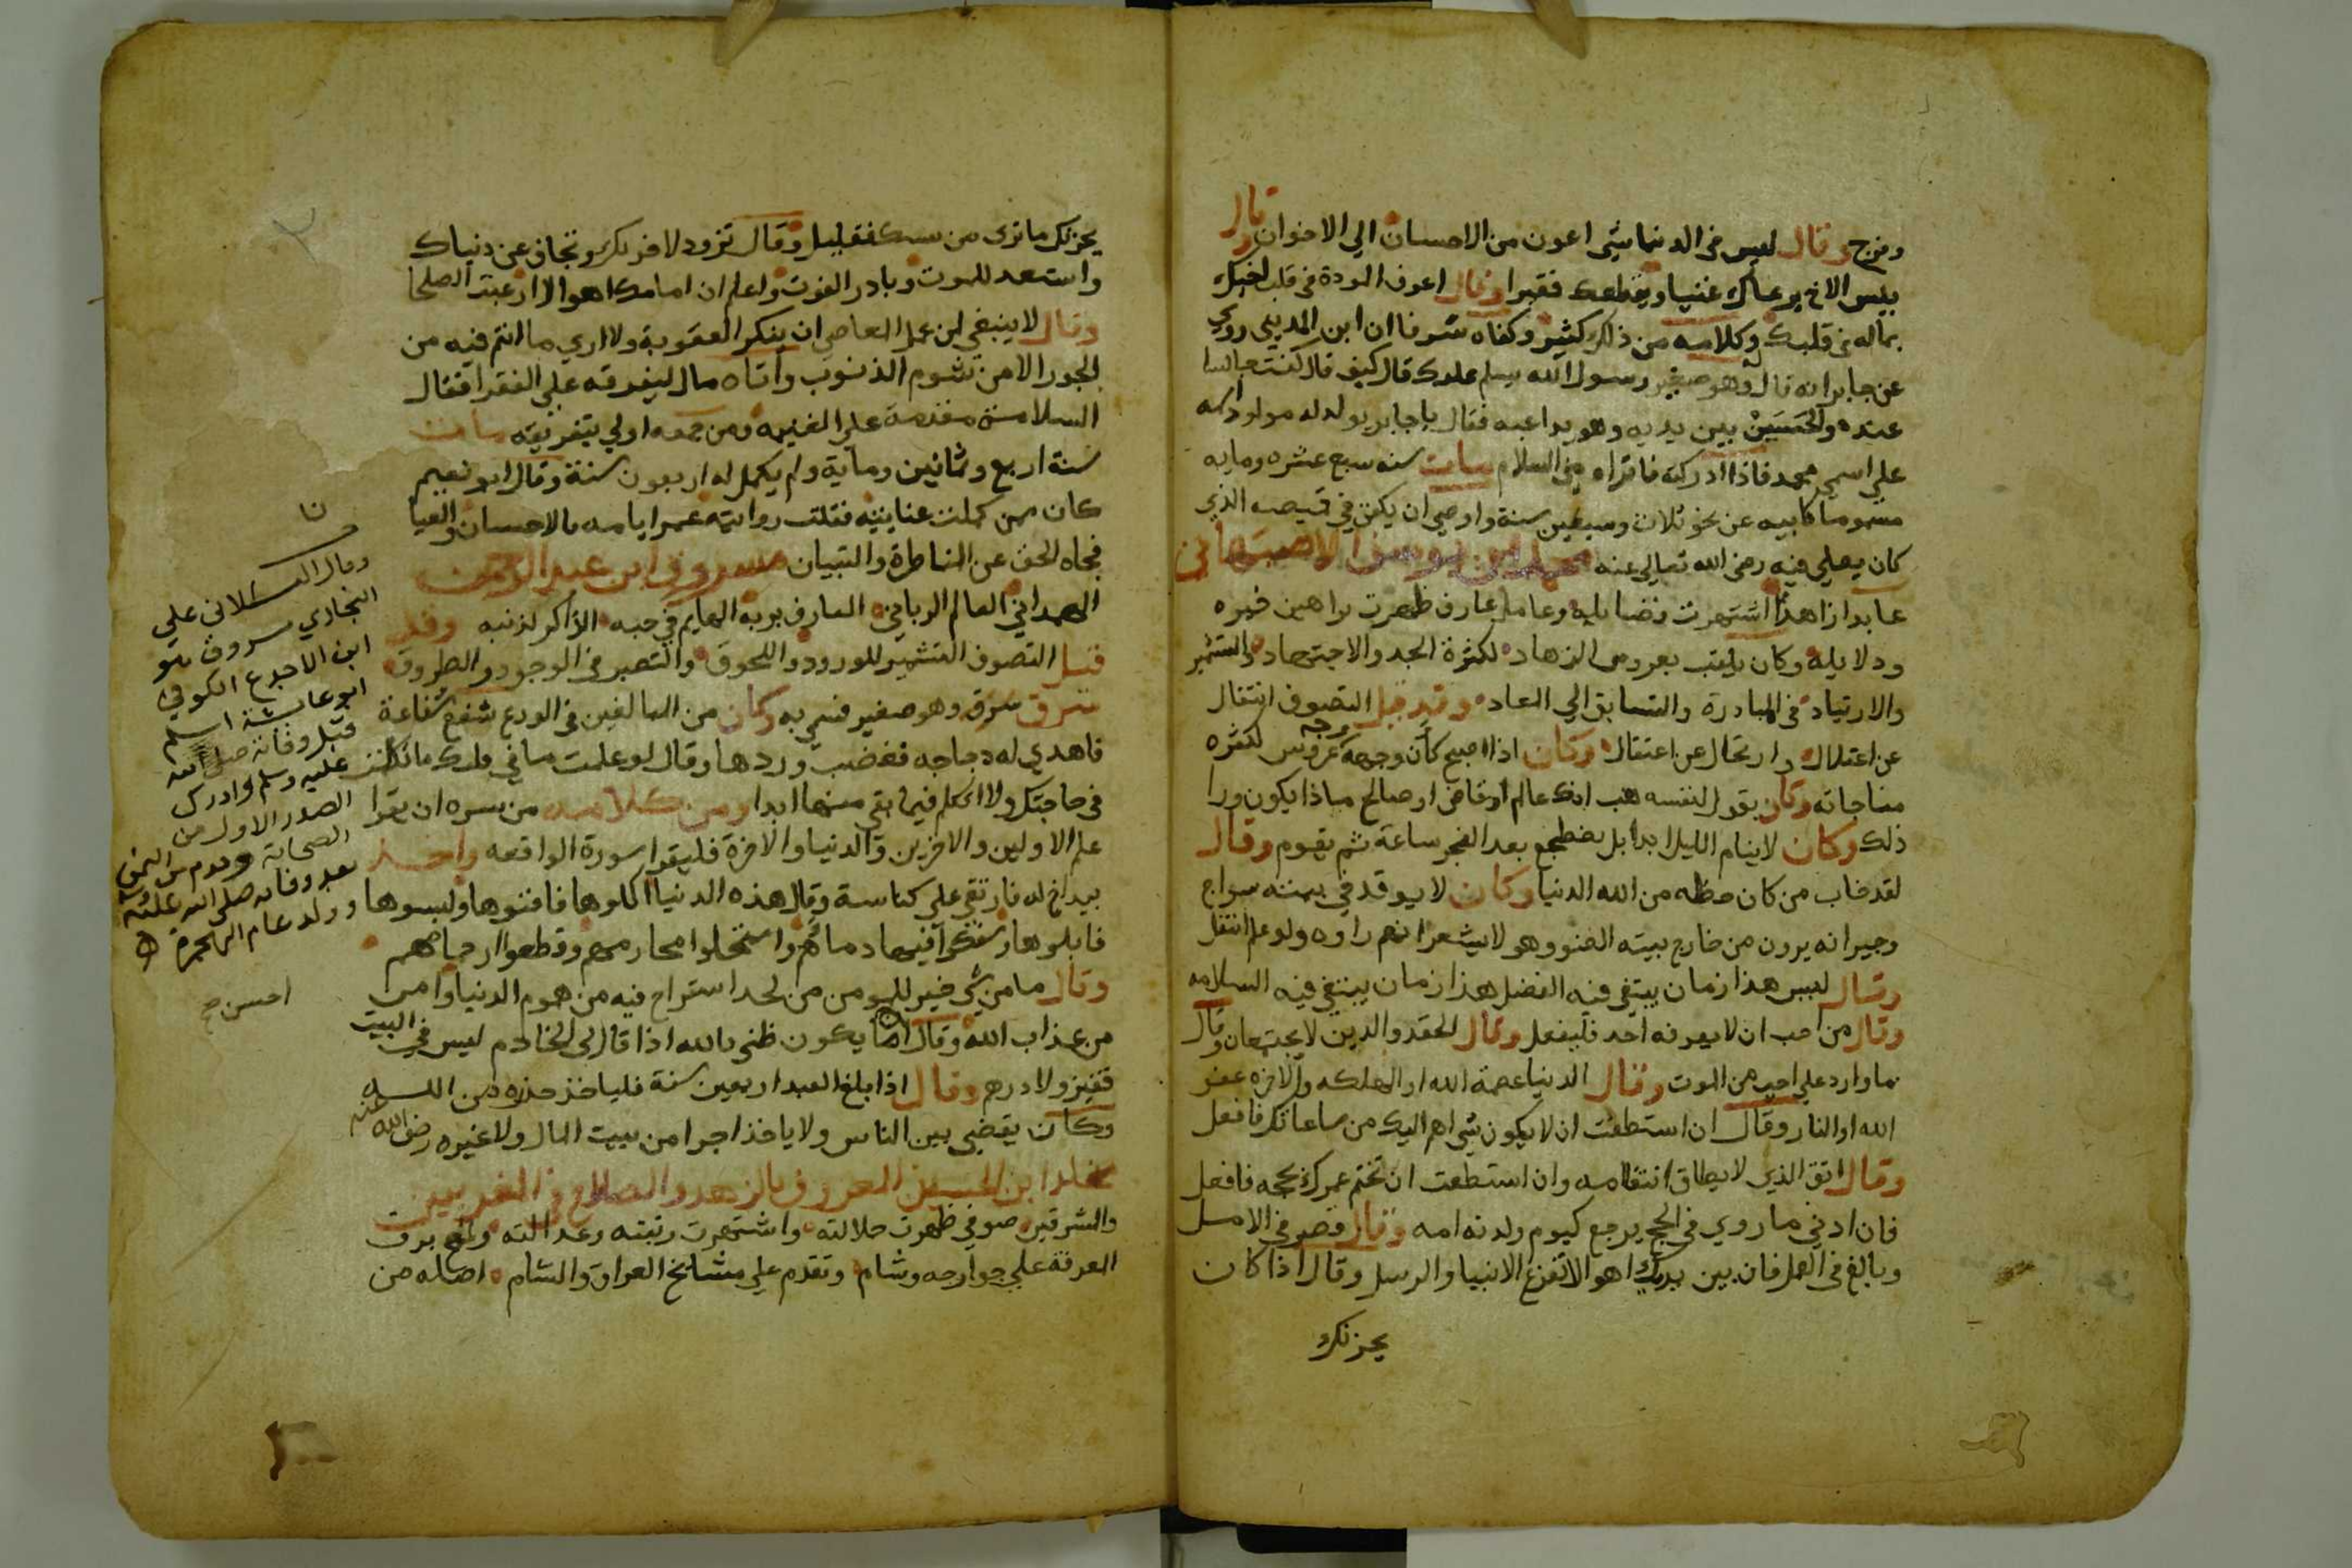 ومزح وقال ليس في الدنيا شي اعون من الاحسان الي الاخوان وقال
بيس الاخ يرعاك غنيا ويقطعك فقيرا وقال اعرف المودة في قلب اخيك
بماله في قلبك وكلامه من ذلك كثير وكفاه شرفا ان ابن المديني روي
عن جابر انه قال له وهو صغير رسول الله يسلم عليك قال كيف قال كنت جالسا
عنده والحسين بين يديه وهو يداعبه فقال يا جابر يولد له مولود اسمه
علي اسمي محمد فاذا ادركته فاقراه مني السلام مات سنه سبع عشره ومايه
مسموما كابيه عن نحو ثلاث وسبعين سنة واوصي ان يكفن في قميصه الذي
كان يصلي فيه رضي الله تعالي عنه محمد ابن يوسف الاصبهاني
عابدا زاهدا اشتهرت فضايله وعاملا عارف ظهرت براهين خيره
ودلايله وكان يلقب بعروس الزهاد لكثرة الجد والاجتهاد والتشمير
والارتياد في المبادرة والتسابق الي المعاد وقد قيل التصوف انتقال
عن اعتلال وارتحال عن اعتقال وكان اذا اصبح كأن وجهه وجه عروس لكثره
مناجاته وكان يقول لنفسه هب انك عالم او قاضي او صالح ماذا يكون ورا
ذلك وكان لا ينام الليل ابدا بل يضطجع بعد الفجر ساعة ثم يقوم وقال
لقد خاب من كان حظه من الله الدنيا وكان لا يوقد في بيته سراج
وجيرانه يرون من خارج بيته الضوو وهو لا يشعر انهم راوه ولو علم انتقل
وقال ليس هذا زمان يبتغي فيه الفضل هذا زمان يبتغي فيه السلامه
وقال من احب ان لا يعرفه احد فليفعل وقال الحقد والدين لا يجتمعان وقال
ما وارد علي احد من الموت وقال الدنيا عصمة الله او الهلكه والاخره عفو
الله او النار وقال ان استطعت ان لا يكون شي اهم اليك من ساعاتك فافعل
وقال اتق الذي لا يطاق انتقامه وان استطعت ان تختم عمرك بحجه فافعل
فان ادني ما روي في الحج يرجع كيوم ولدته امه وقال قصر في الامل
وبالغ في العمل فان بين يديك اهوالا تفزع الانبيا والرسل وقال اذا كان
يحزنك
يحزنك ما تري من نفسك فقليل وقال تزود لاخرتك وتجاف عن دنياك
واستعد للموت وبادر الفوت واعلم ان امامك اهوالا ارعبت الصلحا
وقال لا ينبغي لمن عمل المعاصي ان ينكر العقوبة ولا اري ما انتم فيه من
الجور الا من شوم الذنوب واتاه مال ليفرقه علي الفقرا فقال
السلامة مقدمة علي الغنيمه ومن جمعه اولي بتفريقه مات
سنة اربع وثمانين وماية ولم يكمل له اربعون سنة وقال ابو نعيم
كان ممن كملت عنايته فقلت روايته عمر ايامه بالاحسان والعيا
فحماه الحق عن المناظرة والتبيان مسروق ابن عبد الرحمن
الهمداني العالم الرباني العارف بربه الهايم في حبه الذاكر لذنبه وقد
قيل التصوف التشهير للورود واللحوق والتصبر في الوجود والطروق
سرق وهو صغير فسمي به وكان من المبالغين في الورع شفع شفاعة
فاهدي له دجاجه فغضب وردها وقال لو علمت ما في قلبك ما تكلمت
في حاجتك ولا اتكلم فيما بقي منها ابدا ومن كلامه من سره ان يقرا
علم الاولين والاخرين والدنيا والاخرة فليقرا سورة الواقعه واخذ
بيد اخ له فارتقي علي كناسة وقال هذه الدنيا اكلوها فافنوها ولبسوها
فابلوها وسفكوا فيها دماهم واستحلوا محارمهم وقطعوا ارحامهم
وقال ما من شي خير للمومن من لحد استراح فيه من هموم الدنيا وامن
من عذاب الله وقال يكون ظني بالله اذا قال لي الخادم ليس في البيت
قفيز ولا درهم وقال اذا بلغ العبد اربعين سنة فلياخذ حذره من الله
وكان يقضي بين الناس ولا ياخذ اجرا من بيت المال ولا غيره رضي الله عنه
مخلد ابن الحسين المعروف بالزهد والصلاح في المغربين
والشرقين صوفي ظهرت جلالته واشتهرت رتبته وعدالته ولمع برق
المعرفة علي جوارحه وشام وتقدم علي مشايخ العراق والشام اصله من
وقال القسطلاني علي
البخاري مسروق هو
ابن الاجدع الكوفي
ابو عايشة اسلم
قبل وفاته صلي الله
عليه وسلم وادرك
الصدر الاول من
الصحابة وقدم من اليمن
بعد وفاته صلي الله عليه وسلم
وولد عام الهجرة
احسن